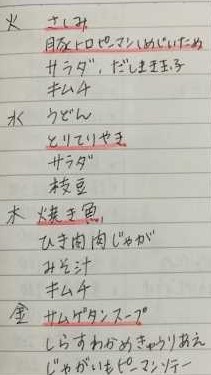 火 さしみ
豚トロピーマンしめじいため
サラダ、だしまき玉子
キムチ
水 うどん
とりてりやき
サラダ
枝豆
木 焼き魚
ひき肉肉じゃが
みそ汁
キムチ
金 サムゲタンスープ
しらすわかめきゅうりあえ
じゃがいもピーマンソテー